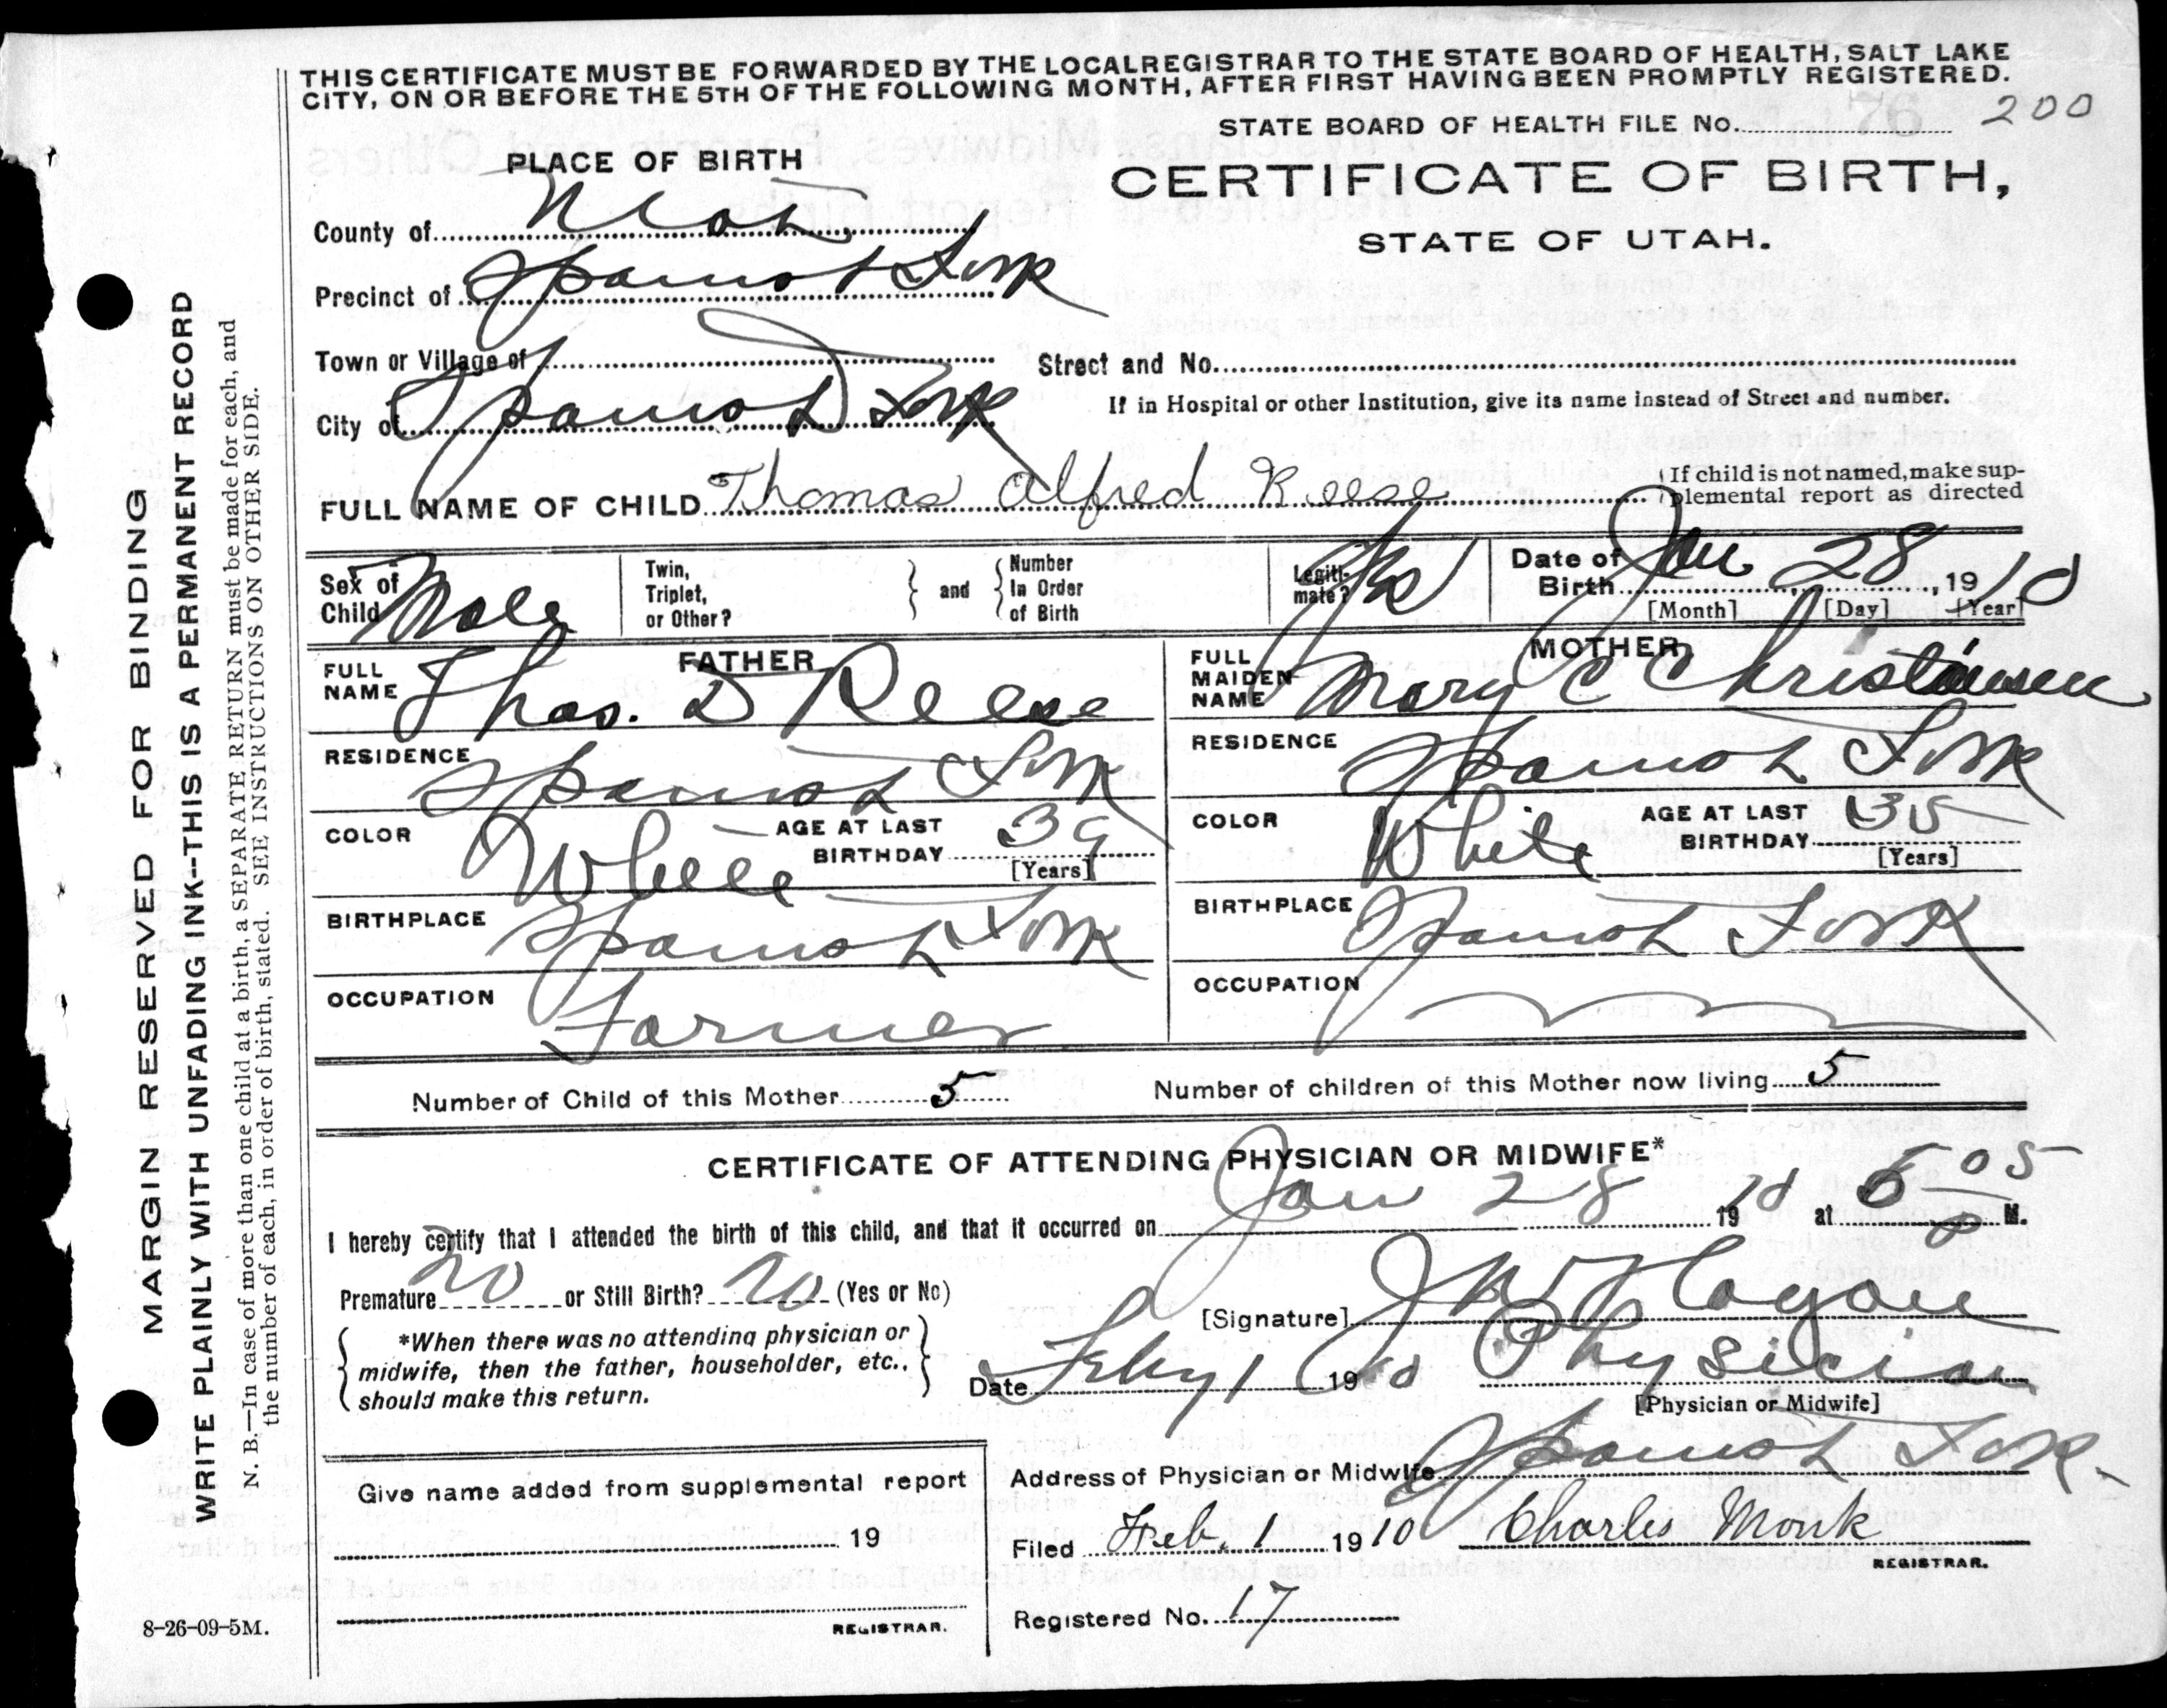 THIS CERTIFICATE MUST BE FORWARDED BY THE LOCAL REGISTRAR TO THE STATE BOARD OF HEALTH, SALT LAKE
CITY, ON OR BEFORE THE 5TH OF THE FOLLOWING MONTH, AFTER FIRST HAVING BEEN PROMPTLY REGISTERED.
STATE BOARD OF HEALTH FILE No. 76 200
PLACE OF BIRTH
CERTIFICATE OF BIRTH,
STATE OF UTAH.
County of Utah
Precinct of Spanish Fork
Town or Village of
Street and No.
City of Spanish Fork
If in Hospital or other Institution, give its name instead of Street and number.
FULL NAME OF CHILD Thomas Alfred Reese
If child is not named, make sup-
plemental report as directed
Sex of Child Male
Twin, Triplet, or Other?
and
Number In Order of Birth
Legiti-mate? Yes
Date of Birth Jan 28, 1910
[Month] [Day] [Year]
FATHER
FULL NAME Thos. D Reese
RESIDENCE Spanish Fork
COLOR White
AGE AT LAST BIRTHDAY 39
[Years]
BIRTHPLACE Spanish Fork
OCCUPATION Farmer
MOTHER
FULL MAIDEN NAME Mary C Christensen
RESIDENCE Spanish Fork
COLOR White
AGE AT LAST BIRTHDAY 35
[Years]
BIRTHPLACE Spanish Fork
OCCUPATION
Number of Child of this Mother 5
Number of children of this Mother now living 5
CERTIFICATE OF ATTENDING PHYSICIAN OR MIDWIFE*
I hereby certify that I attended the birth of this child, and that it occurred on Jan 28 1910 at 05 M.
Premature No or Still Birth? No (Yes or No)
*When there was no attending physician or
midwife, then the father, householder, etc.,
should make this return.
[Signature] J W Hagan
Date Feby 1 1910 Physician
[Physician or Midwife]
Address of Physician or Midwife Spanish Fork.
Give name added from supplemental report
19
REGISTRAR.
Filed Feb. 1 1910 Charles Monk
REGISTRAR.
Registered No. 17
8-26-09-5M.
MARGIN RESERVED FOR BINDING
WRITE PLAINLY WITH UNFADING INK--THIS IS A PERMANENT RECORD
N. B.—In case of more than one child at a birth, a SEPARATE RETURN must be made for each, and
the number of each, in order of birth, stated. SEE INSTRUCTIONS ON OTHER SIDE.